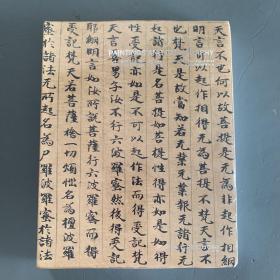 天言不也何以故菩提是无為非起作相網
明言可以起作相得无為菩提不梵天言不
也梵天是故當知若无業无業報无諸行无
起諸行是名菩提如菩提性得亦如是如
性受記亦如是不可以起作法而得受記梵
天言善男子汝不行六波羅蜜然後得受記
耶網明言如汝所說菩薩行六波羅蜜而得
受記梵天若菩薩捨一切煩惱名為檀波羅
蜜於諸法无所起名為尸羅波羅蜜於諸法
PAINTING